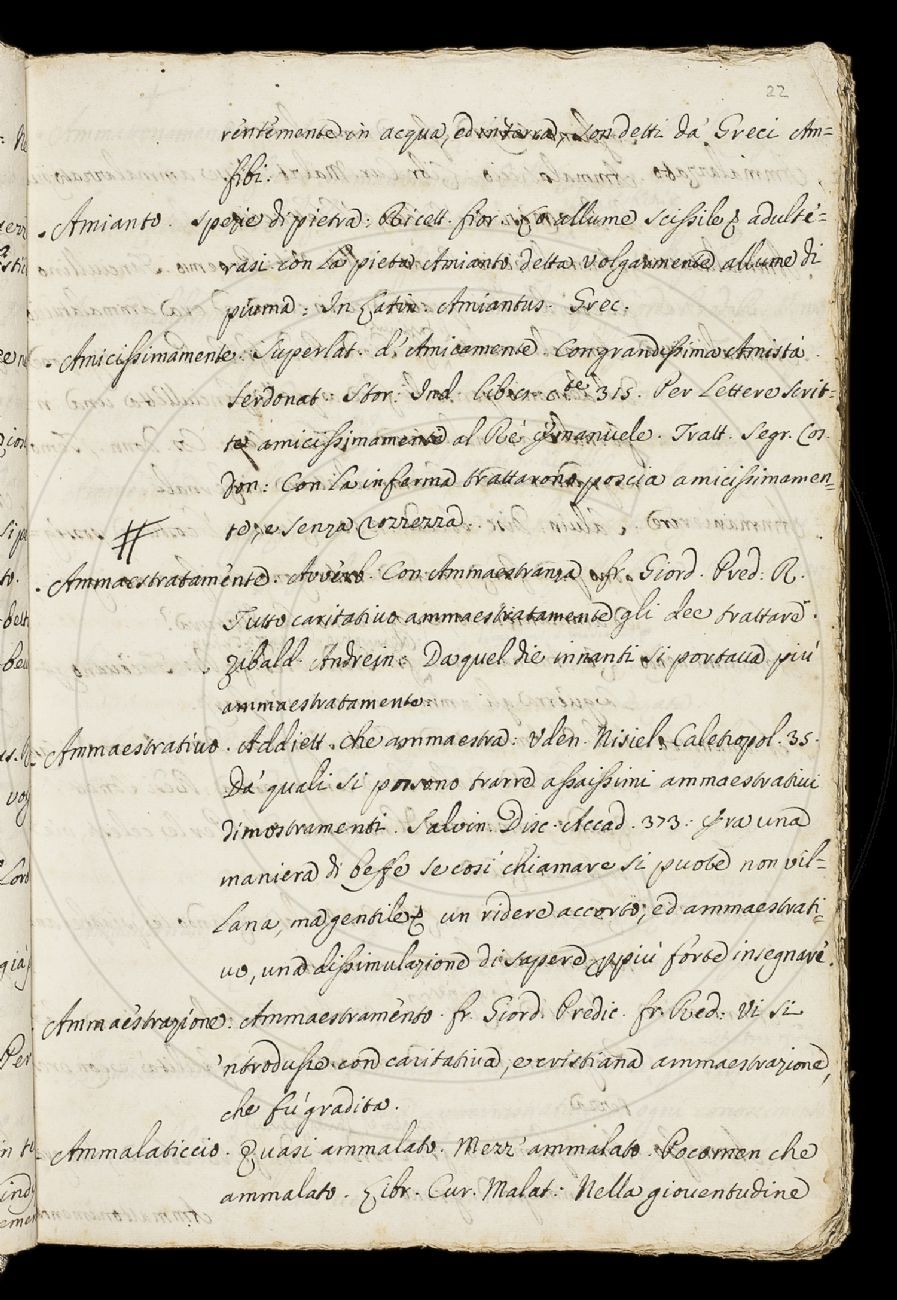 22
rentemente in acqua, ed in terra, son detti da' Greci An=
fibi.
Amianto. spezie di pietra: Ricett. fior. Lo allume scissile adulte=
rasi con la pietra Amianto detta volgarmente allume di
piuma: In Latin. Amiantus. Grec.
Amicissimamente. Superlat. d'Amicamente. Con grandissima Amistà.
Serdonat. Stor: Ind. lib. 315. Per Lettere scrit=
te amicissimamente al Rè Emanuele. Tratt. Segr. Cos.
Don: Con la inferma trattarono poscia amicissimamen=
te, e senza rozzezza.
#
Ammaestratamente. Avverb. Con Ammaestranza. fr. Giord. Pred: R.
Tutto caritativo ammaestratamente gli dee trattare.
Zibald. Andrein: Da quel die innanti si portava più
ammaestratamente.
Ammaestrativo. Addiett. che ammaestra: Uden. Nisiel. 35.
Da' quali si possono trarre assaissimi ammaestrativi
dimostramenti. Salvin. Disc. Accad. 373: una
maniera di beffe se così chiamare si puote non vil=
lana, ma gentile, un ridere accorto, ed ammaestrati=
vo, una dissimulazione di sapere più forte insegnare.
Ammaestrazione: Ammaestramento. fr. Giord. Predic. fr. Red: Vi si
'ntrodusse con caritativa, e cristiana ammaestrazione,
che fù gradita.
Ammalaticcio. Quasi ammalato. Mezz' ammalato. Poco men che
ammalato. Libr. Cur. Malat: Nella gioventudine